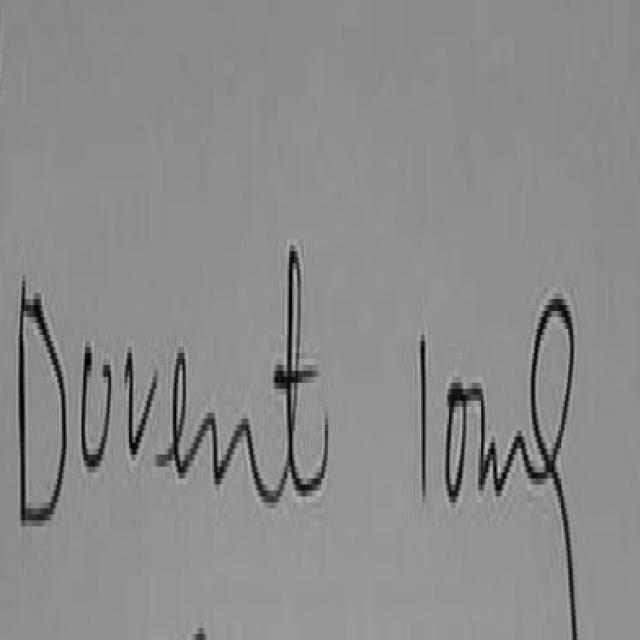 Dovent long